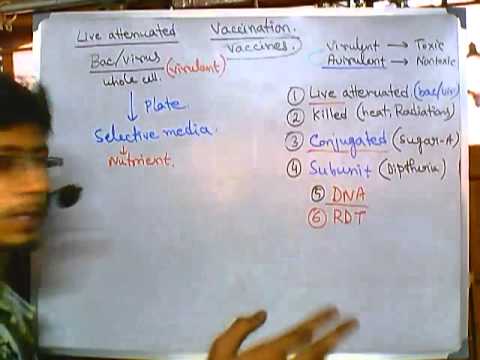 Live attenuated
Bac/virus (virulent)
whole cell.
Plate
Selective media.
Nutrient.
Vaccination.
Vaccines.
Virulent → Toxic
Avirulent → Nontoxic
① Live attenuated (bac/vir)
② Killed (heat, Radiations)
③ Conjugated (Sugar-A)
④ Subunit (Diptheria)
⑤ DNA
⑥ RDT